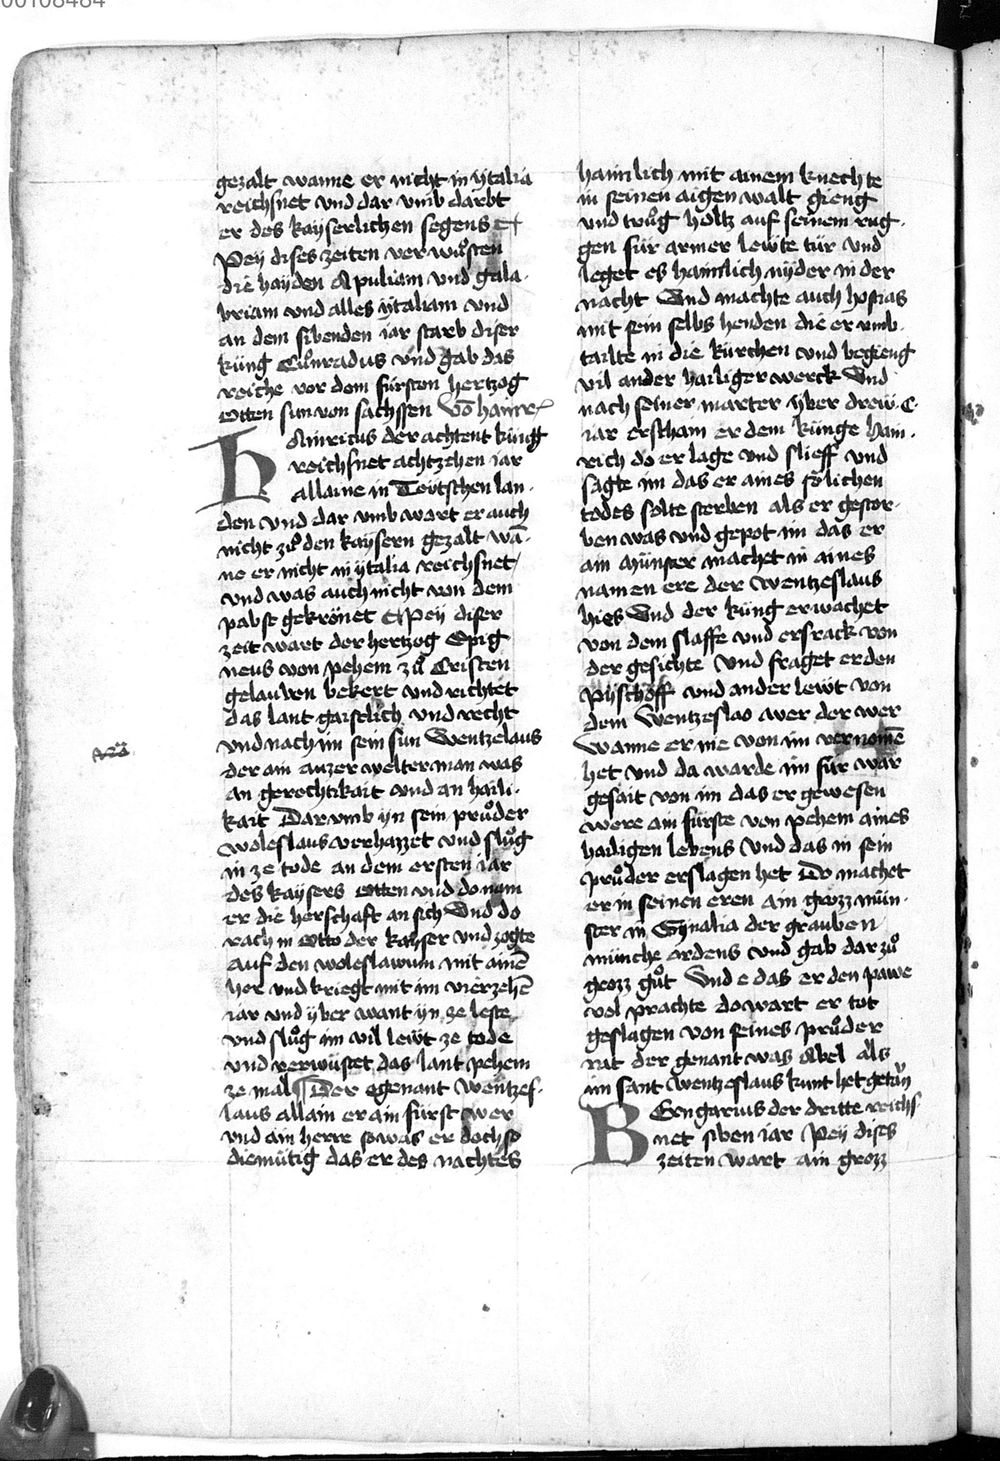 00108484
gezalt wanne er nicht in ytalia
reichsnet vnd dar vmb darbt
er des kayserlichen segens
Pey dises zeiten verwůsten
die hayden Apuliam vnd Cala
briam vnd alles ytaliam vnd
an dem sibenden iar starb diser
küng Cůnradus vnd gab das
reiche vor dem fürsten hertzog
Otten sun von sachssen Võ hainr
HAinricus der achtent küng
reichsnet achtzehen iar
allaine in Tewtschen lan
den vnd dar vmb wart er auch
nicht zů den kaysern gezalt wã
ne er nicht in ytalia reichsnet
vnd was auch nicht von dem
pabst gekrönet Pey diser
zeit wart der hertzog Spig
neus von pehem zů Cristen
gelauben bekert vnd richtet
das lant gaistlich vnd recht
vnd nach im sein sun Wentzelaus
der ain auzerwelter man was
an gerechtikait vnd an haili
kait Dar vmb yn sein průder
woleslaus verhazzet vnd slůg
in ze tode an dem ersten iar
des kaysers Otten vnd do nam
er die herschaft an sich Vnd do
rach in Otto der kayser vnd zogte
auf den woleslawum mit ainẽ
her vnd kriegt mit im vierzehẽ
iar vnd yber want yn ze leste
vnd slůg im vil lewt ze tode
vnd verwüstet das lant pehem
ze mal Der egenant Wentzes
laus allain er ain fürst wer
vnd ain herre so was er doch so
diemütig das er des nachtes
haimlich mit ainem knechte
in seinen aigen walt gieng
vnd trůg holtz auf seinem rug
gen für armer lewte tür vnd
leget es haimlich nyder in der
nacht Vnd machte auch hostias
mit sein selbs henden die er vmb
tailte in die kirchen vnd begieng
vil ander hailiger werck Vnd
nach seiner marter yber drew C
iar erscham er dem künge Hain
rich do er lage vnd slieff vnd
sagte im das er aines sölichen
todes solte sterben als er gestor
ben was vnd gepot im das er
ain münster machet in aines
namen ere der Wentzeslaus
hies Vnd der küng erwachet
von dem slaffe vnd ersrack von
der gesichte Vnd fraget er den
pyschoff vnd ander lewt von
dem Wentzeslao wer der wer
Wanne er nie von im vernomẽ
het vnd da warde im für war
gesait von im das er gewesen
were ain fürste von pehem aines
hailigen lebens vnd das in sein
průder erslagen het Do machet
er in seinen eren ain grozz mün
ster in Gynalia der grauben
münche ordens vnd gab dar zů
grozz gůt Vnd e das er den pawe
vol prachte do wart er tot
geslagen von seines průder
rat der genant was Abel als
im sant Wentzeslaus kunt het getan
BErngarius der dritte reichs
net siben iar Pey dises
zeiten wart ain grozz